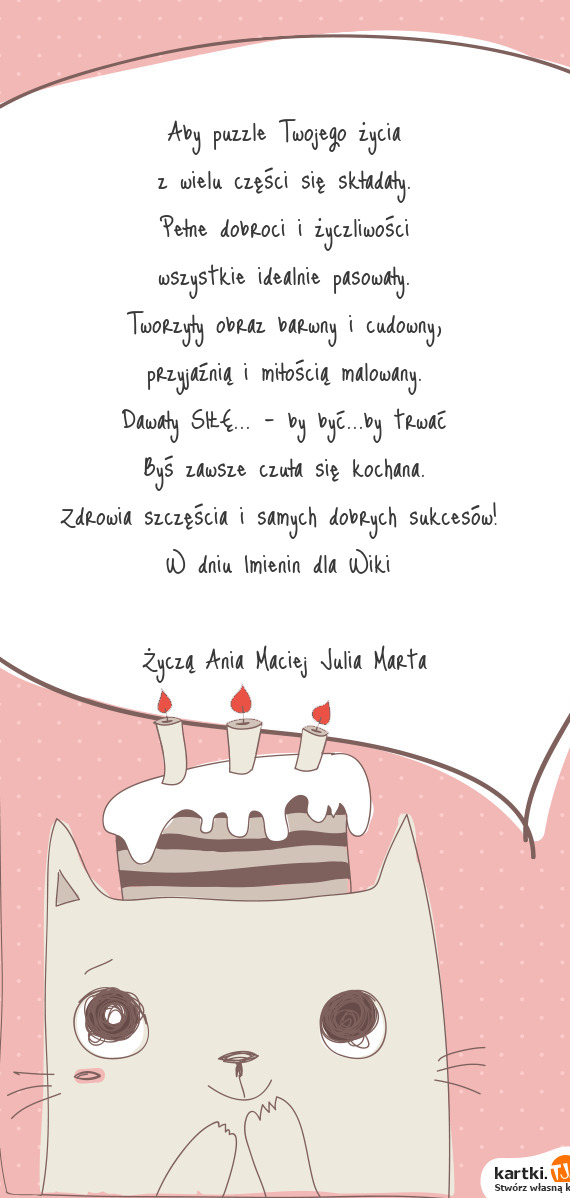 Aby puzzle Twojego życia
z wielu części się składały.
Pełne dobroci i życzliwości
wszystkie idealnie pasowały.
Tworzyły obraz barwny i cudowny,
przyjaźnią i miłością malowany.
Dawały SIŁĘ... - by być...by trwać
Byś zawsze czuła się kochana.
Zdrowia szczęścia i samych dobrych sukcesów!
W dniu Imienin dla Wiki
Życzą Ania Maciej Julia Marta
kartki.TJ
Stwórz własną k